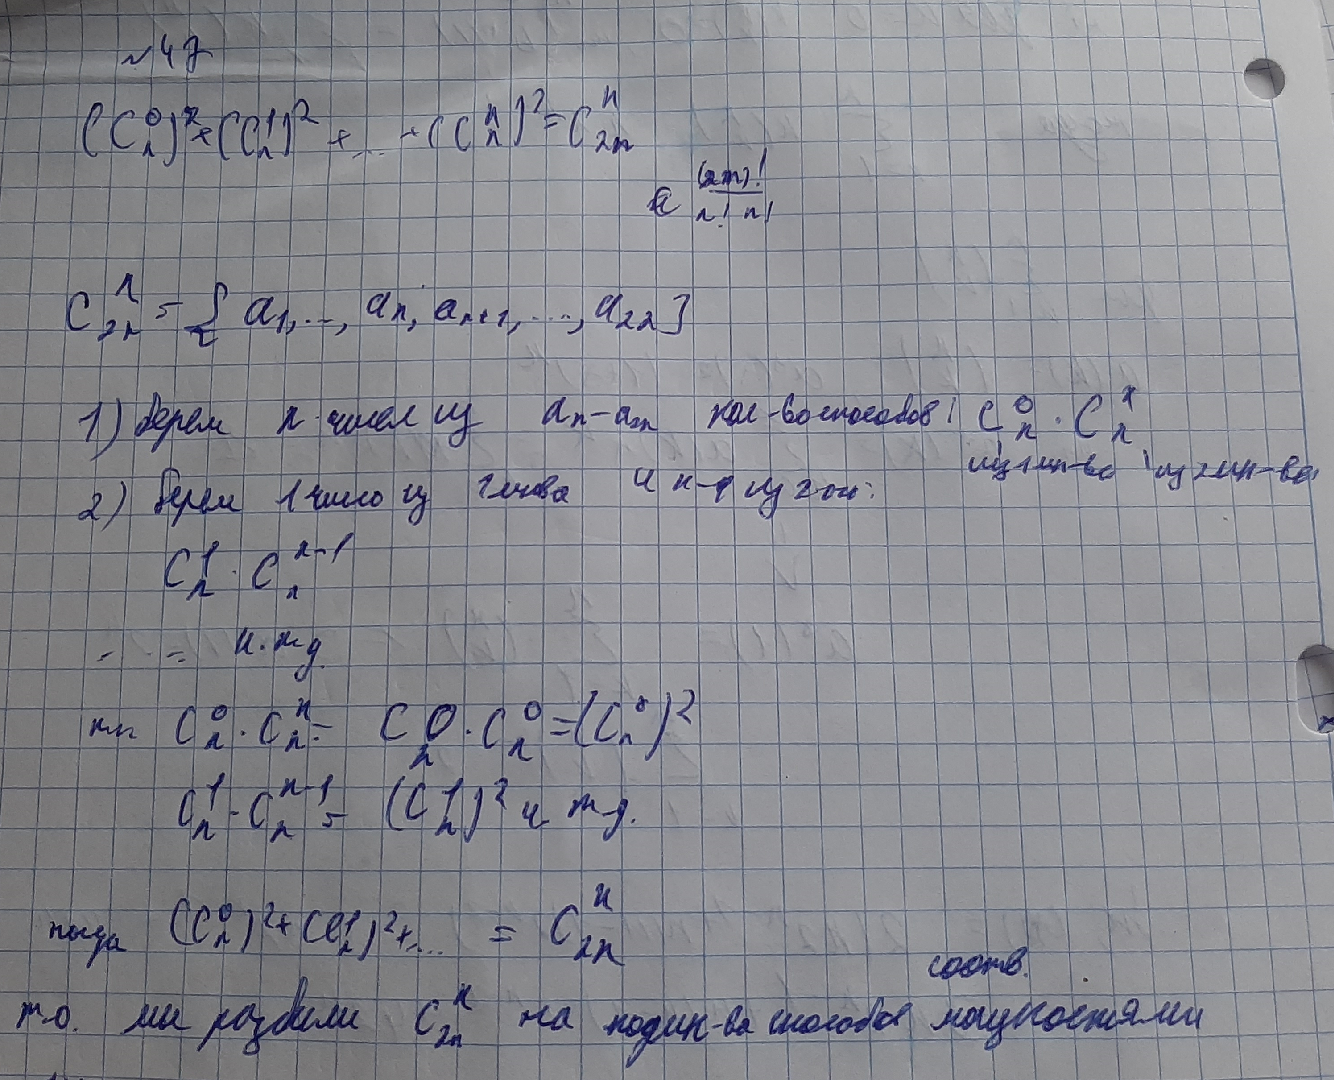 №47
(C_n^0)^2+(C_n^1)^2+...+(C_n^n)^2=C_{2n}^n
(2n)! / n! n!
C_{2n}^n = { a_1,..., a_n, a_{n+1},..., a_{2n}}
1) берем n чисел из a_n-a_{2n} кол-во способов: C_n^0 · C_n^n
из 1 мн-ва из 2 мн-ва
2) берем 1 число из и n-1 из 2ого:
C_n^1 · C_n^{n-1}
... и. тд
C_n^0 · C_n^n = C_n^0 · C_n^0 = (C_n^0)^2
C_n^1 · C_n^{n-1} = (C_n^1)^2 и тд.
тогда (C_n^0)^2+(C_n^1)^2+... = C_{2n}^n
соотв.
т.о. мы разбили C_{2n}^n на подмн-ва способов мощностями